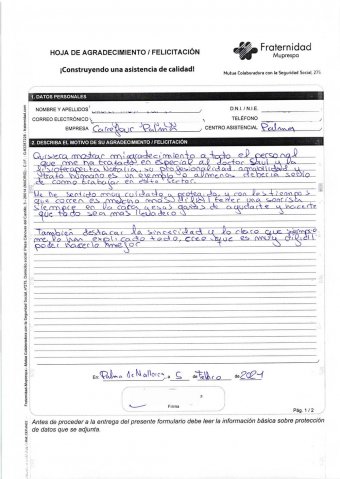 HOJA DE AGRADECIMIENTO / FELICITACIÓN
¡Construyendo una asistencia de calidad!
Fraternidad
Muprespa
Mutua Colaboradora con la Seguridad Social, 275
1. DATOS PERSONALES
NOMBRE Y APELLIDOS
D.N.I. / N.I.E.
CORREO ELECTRÓNICO
TELÉFONO
EMPRESA Carrefour Palma
CENTRO ASISTENCIAL Palma
2. DESCRIBA EL MOTIVO DE SU AGRADECIMIENTO / FELICITACIÓN
Quisiera mostrar mi agradecimiento a todo el personal
que me ha tratado en especial al doctor Saul y la
fisioterapeuta Natalia, su profesionalidad, amabilidad y
trato humano es un ejemplo de al menos debería serlo
de como trabajar en este sector.
He sentido muy cuidado y protegida, y con los tiempos
que corren es mucho más difícil tener una sonrisa
siempre en la cara y esas ganas de ayudarte y hacerte
que todo sea más llevadero
También destacar la sinceridad y lo claro que siempre
me lo han explicado todo, creo que es muy difícil
poder hacerlo mejor
En Palma de Mallorca, a 5 de Febrero de 2024
Firma
Pág. 1 / 2
Antes de proceder a la entrega del presente formulario debe leer la información básica sobre protección
de datos que se adjunta.